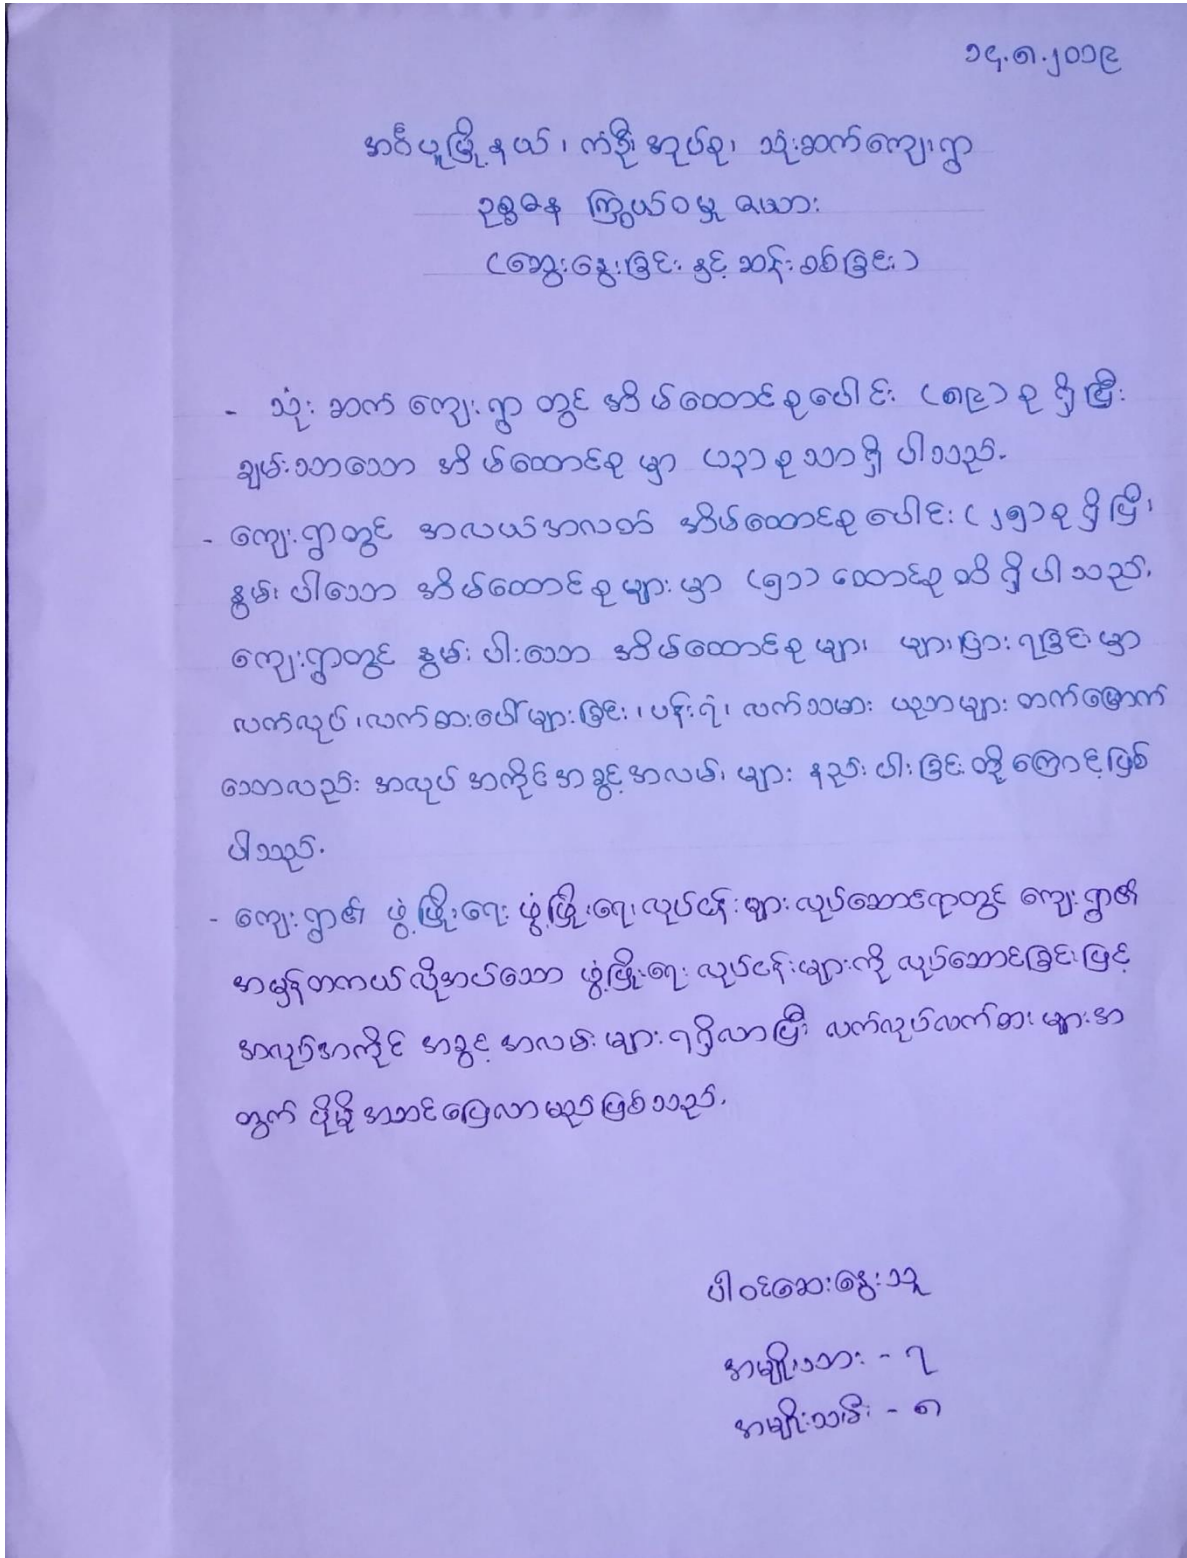 ၁၄.၈.၂၀၁၉
အင်္ဂပူမြို့နယ်၊ ကံဦးအုပ်စု၊ သုံးဆက်ကျေးရွာ
ဥစ္စဓန ကြွယ်ဝမှု ဇယား
(ဆွေးနွေးခြင်း နှင့် ဆန်းစစ်ခြင်း)
- သုံးဆက် ကျေးရွာ တွင် အိမ်ထောင်စုပေါင်း (၈၉) စု ရှိပြီး
ချမ်းသာသော အိမ်ထောင်စု မှာ (၁၃) စု သာရှိ ပါသည်.
- ကျေးရွာတွင် အလယ်အလတ် အိမ်ထောင်စု ပေါင်း (၂၅) စု ရှိပြီး
နွမ်းပါးသော အိမ်ထောင်စု များ မှာ (၅၁) ထောင်စု ထိ ရှိ ပါ သည်.
ကျေးရွာတွင် နွမ်းပါးသော အိမ်ထောင်စု များ များပြားရခြင်း မှာ
လက်လုပ်၊ လက်စားပေါများခြင်း၊ ပန်းရံ၊ လက်သမား ပညာများ တတ်မြောက်
သော်လည်း အလုပ် အကိုင် အခွင့် အလမ်း များ နည်းပါး ခြင်း တို့ ကြောင့်ဖြစ်
ပါသည်.
- ကျေးရွာ၏ ဖွံ့ဖြိုးရေး ဖွံ့ဖြိုးရေးလုပ်ငန်းများ လုပ်ဆောင်ရာတွင် ကျေးရွာ၏
အမှန်တကယ်လိုအပ်သော ဖွံ့ဖြိုးရေး လုပ်ငန်းများကို လုပ်ဆောင်ခြင်းဖြင့်
အလုပ်အကိုင် အခွင့် အလမ်း များ ရရှိလာပြီး လက်လုပ်လက်စား များအ
တွက် ပိုမို အဆင်ပြေလာမည်ဖြစ်သည်.
ပါဝင်ဆွေးနွေးသူ
အမျိုးသား - ၇
အမျိုးသမီး - ၈